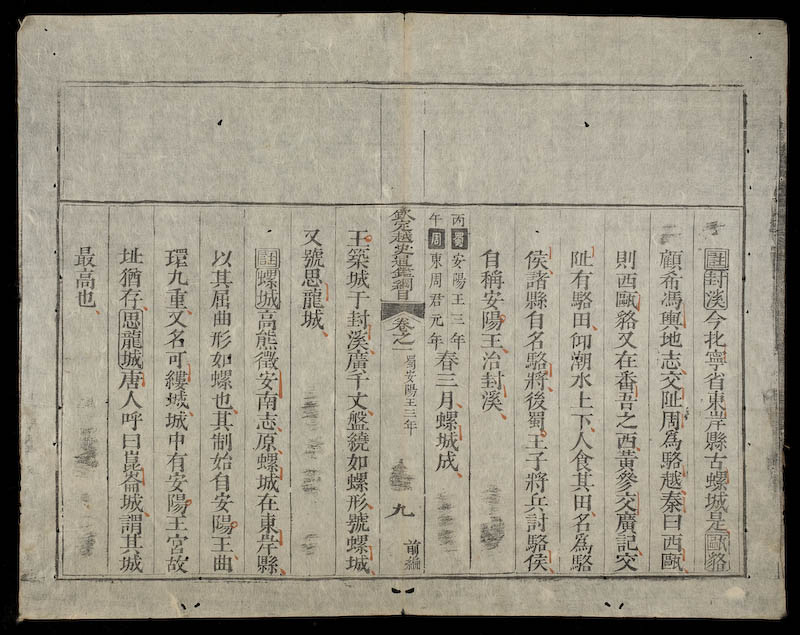 註封溪今北寧省東岸縣古螺城是甌貉
顧希馮輿地志交阯周爲駱越秦曰西甌
則西甌貉又在番吾之西黃參交廣記交
阯有駱田仰潮水上下人食其田名爲駱
侯諸縣自名駱將後蜀王子將兵討駱侯
自稱安陽王治封溪
丙午蜀安陽王三年周東周君元年春三月螺城成
欽定越史通鑑綱目 卷之一 蜀安陽王三年 九 前編
王築城于封溪廣千丈盤繞如螺形號螺城
又號思龍城
註螺城高熊徵安南志原螺城在東岸縣
以其屈曲形如螺也其制始自安陽王曲
環九重又名可縷城城中有安陽王宮故
址猶存思龍城唐人呼曰崑崙城謂其城
最高也